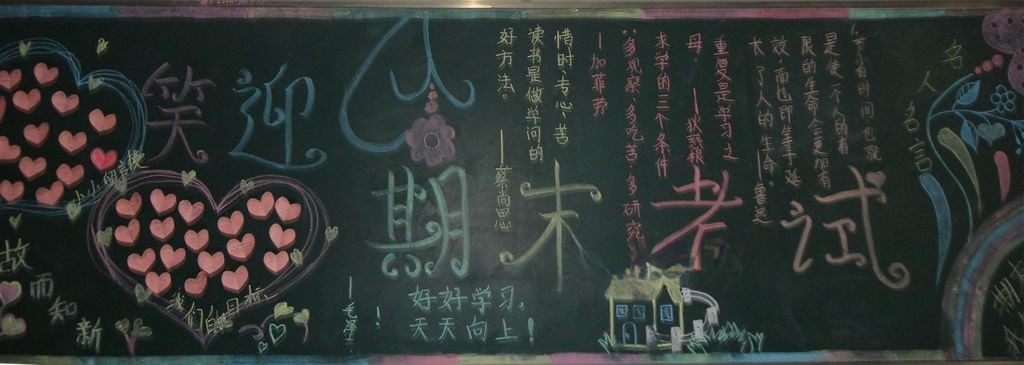 笑迎
期末考试
名人名言
节省时间，也就
是使一个人的有
限的生命，更加有
效，而也即等于延
长了人的生命。——鲁迅
重复是学习之
母。——狄慈根
求学的三个条件
：多观察、多吃苦、多研究
——加菲劳
惜时、专心、苦
读书是做学问的
好方法。——蔡尚思
好好学习，
天天向上！
——毛泽
我们的目标
故而知新